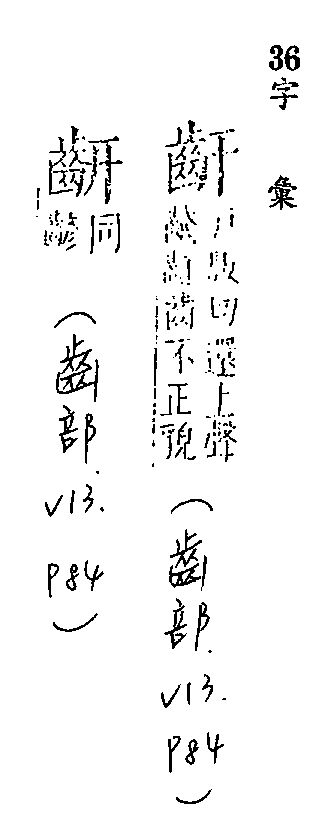 36
字彙
戶版切還上聲
齒不正貌
（齒部.v13.P84）
同
（齒部.v13.P84）